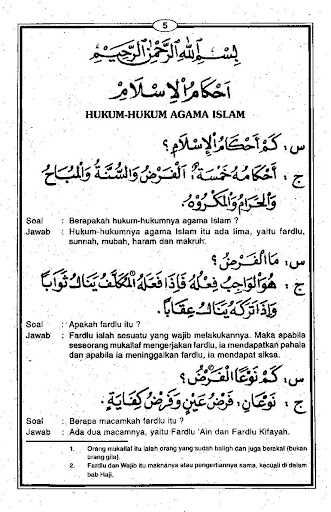 5
بِسْمِ اللهِ الرَّحْمٰنِ الرَّحِيْمِ
اَحْكَامُ الْاِسْلَامِ
HUKUM-HUKUM AGAMA ISLAM
س: كَمْ اَحْكَامُ الْاِسْلَامِ؟
ج: اَحْكَامُهُ خَمْسَةٌ، اَلْفَرْضُ وَالسُّنَّةُ وَالْمُبَاحُ
وَالْحَرَامُ وَالْمَكْرُوْهُ.
Soal : Berapakah hukum-hukumnya agama Islam ?
Jawab : Hukum-hukumnya agama Islam itu ada lima, yaitu fardlu, sunnah, mubah, haram dan makruh.
س: مَا الْفَرْضُ؟
ج: هُوَ الْوَاجِبُ فِعْلُهُ فَاِذَا فَعَلَهُ الْمُكَلَّفُ يَنَالُ ثَوَابًا
وَاِذَا تَرَكَهُ يَنَالُ عِقَابًا.
Soal : Apakah fardlu itu ?
Jawab : Fardlu ialah sesuatu yang wajib melakukannya. Maka apabila seseorang mukallaf mengerjakan fardlu, ia mendapatkan pahala dan apabila ia meninggalkan fardlu, ia mendapat siksa.
س: كَمْ نَوْعًا الْفَرْضُ؟
ج: نَوْعَانِ، فَرْضُ عَيْنٍ وَفَرْضُ كِفَايَةٍ.
Soal : Berapa macamkah fardlu itu ?
Jawab : Ada dua macamnya, yaitu Fardlu 'Ain dan Fardlu Kifayah.
1. Orang mukallaf itu ialah orang yang sudah baligh dan juga berakal (bukan orang gila).
2. Fardlu dan Wajib itu maknanya atau pengertiannya sama, kecuali di dalam bab Haji.